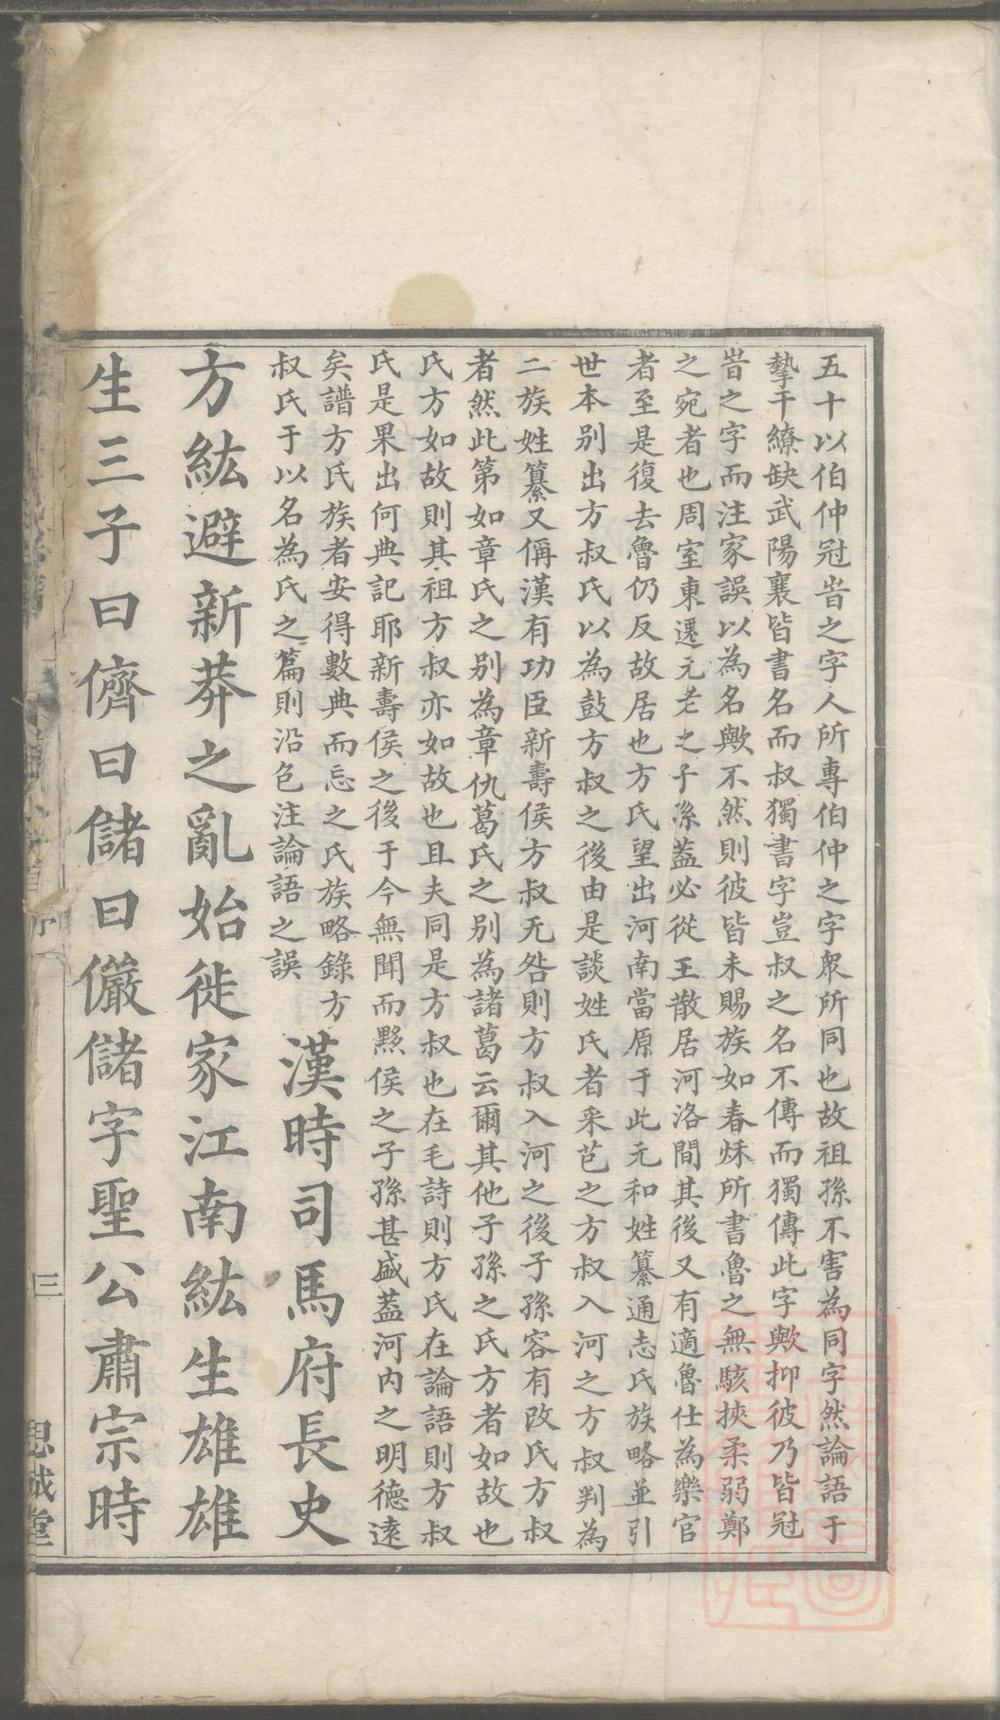 五十以伯仲冠岀之字人所專伯仲之字衆所同也故祖孫不害為同字然論語于
摯干繚缺武陽襄皆書名而叔獨書字豈叔之名不傳而獨傳此字歟抑彼乃皆冠
岀之字而注家誤以為名歟不然則彼皆未賜族如春秌所書魯之無駭挾柔弱鄭
之宛者也周室東遷元老之子孫蓋必從王散居河洛間其後又有適魯仕為樂官
者至是復去魯仍反故居也方氏望出河南當原于此元和姓纂通志氏族略並引
世本別出方叔氏以為鼓方叔之後由是談姓氏者采芑之方叔入河之方叔判為
二族姓纂又偁漢有功臣新壽侯方叔无咎則方叔入河之後子孫容有改氏方叔
者然此第如章氏之別為章仇葛氏之別為諸葛云爾其他子孫之氏方者如故也
氏方如故則其祖方叔亦如故也且夫同是方叔也在毛詩則方氏在論語則方叔
氏是果出何典記耶新壽侯之後于今無聞而黟侯之子孫甚盛蓋河內之明德遠
矣譜方氏族者安得數典而忘之氏族略錄方
叔氏于以名為氏之篇則沿色注論語之誤
漢時司馬府長史
方紘避新莽之亂始徙家江南紘生雄雄
生三子曰儕曰儲曰儼儲字聖公肅宗時
序
三
思誠堂